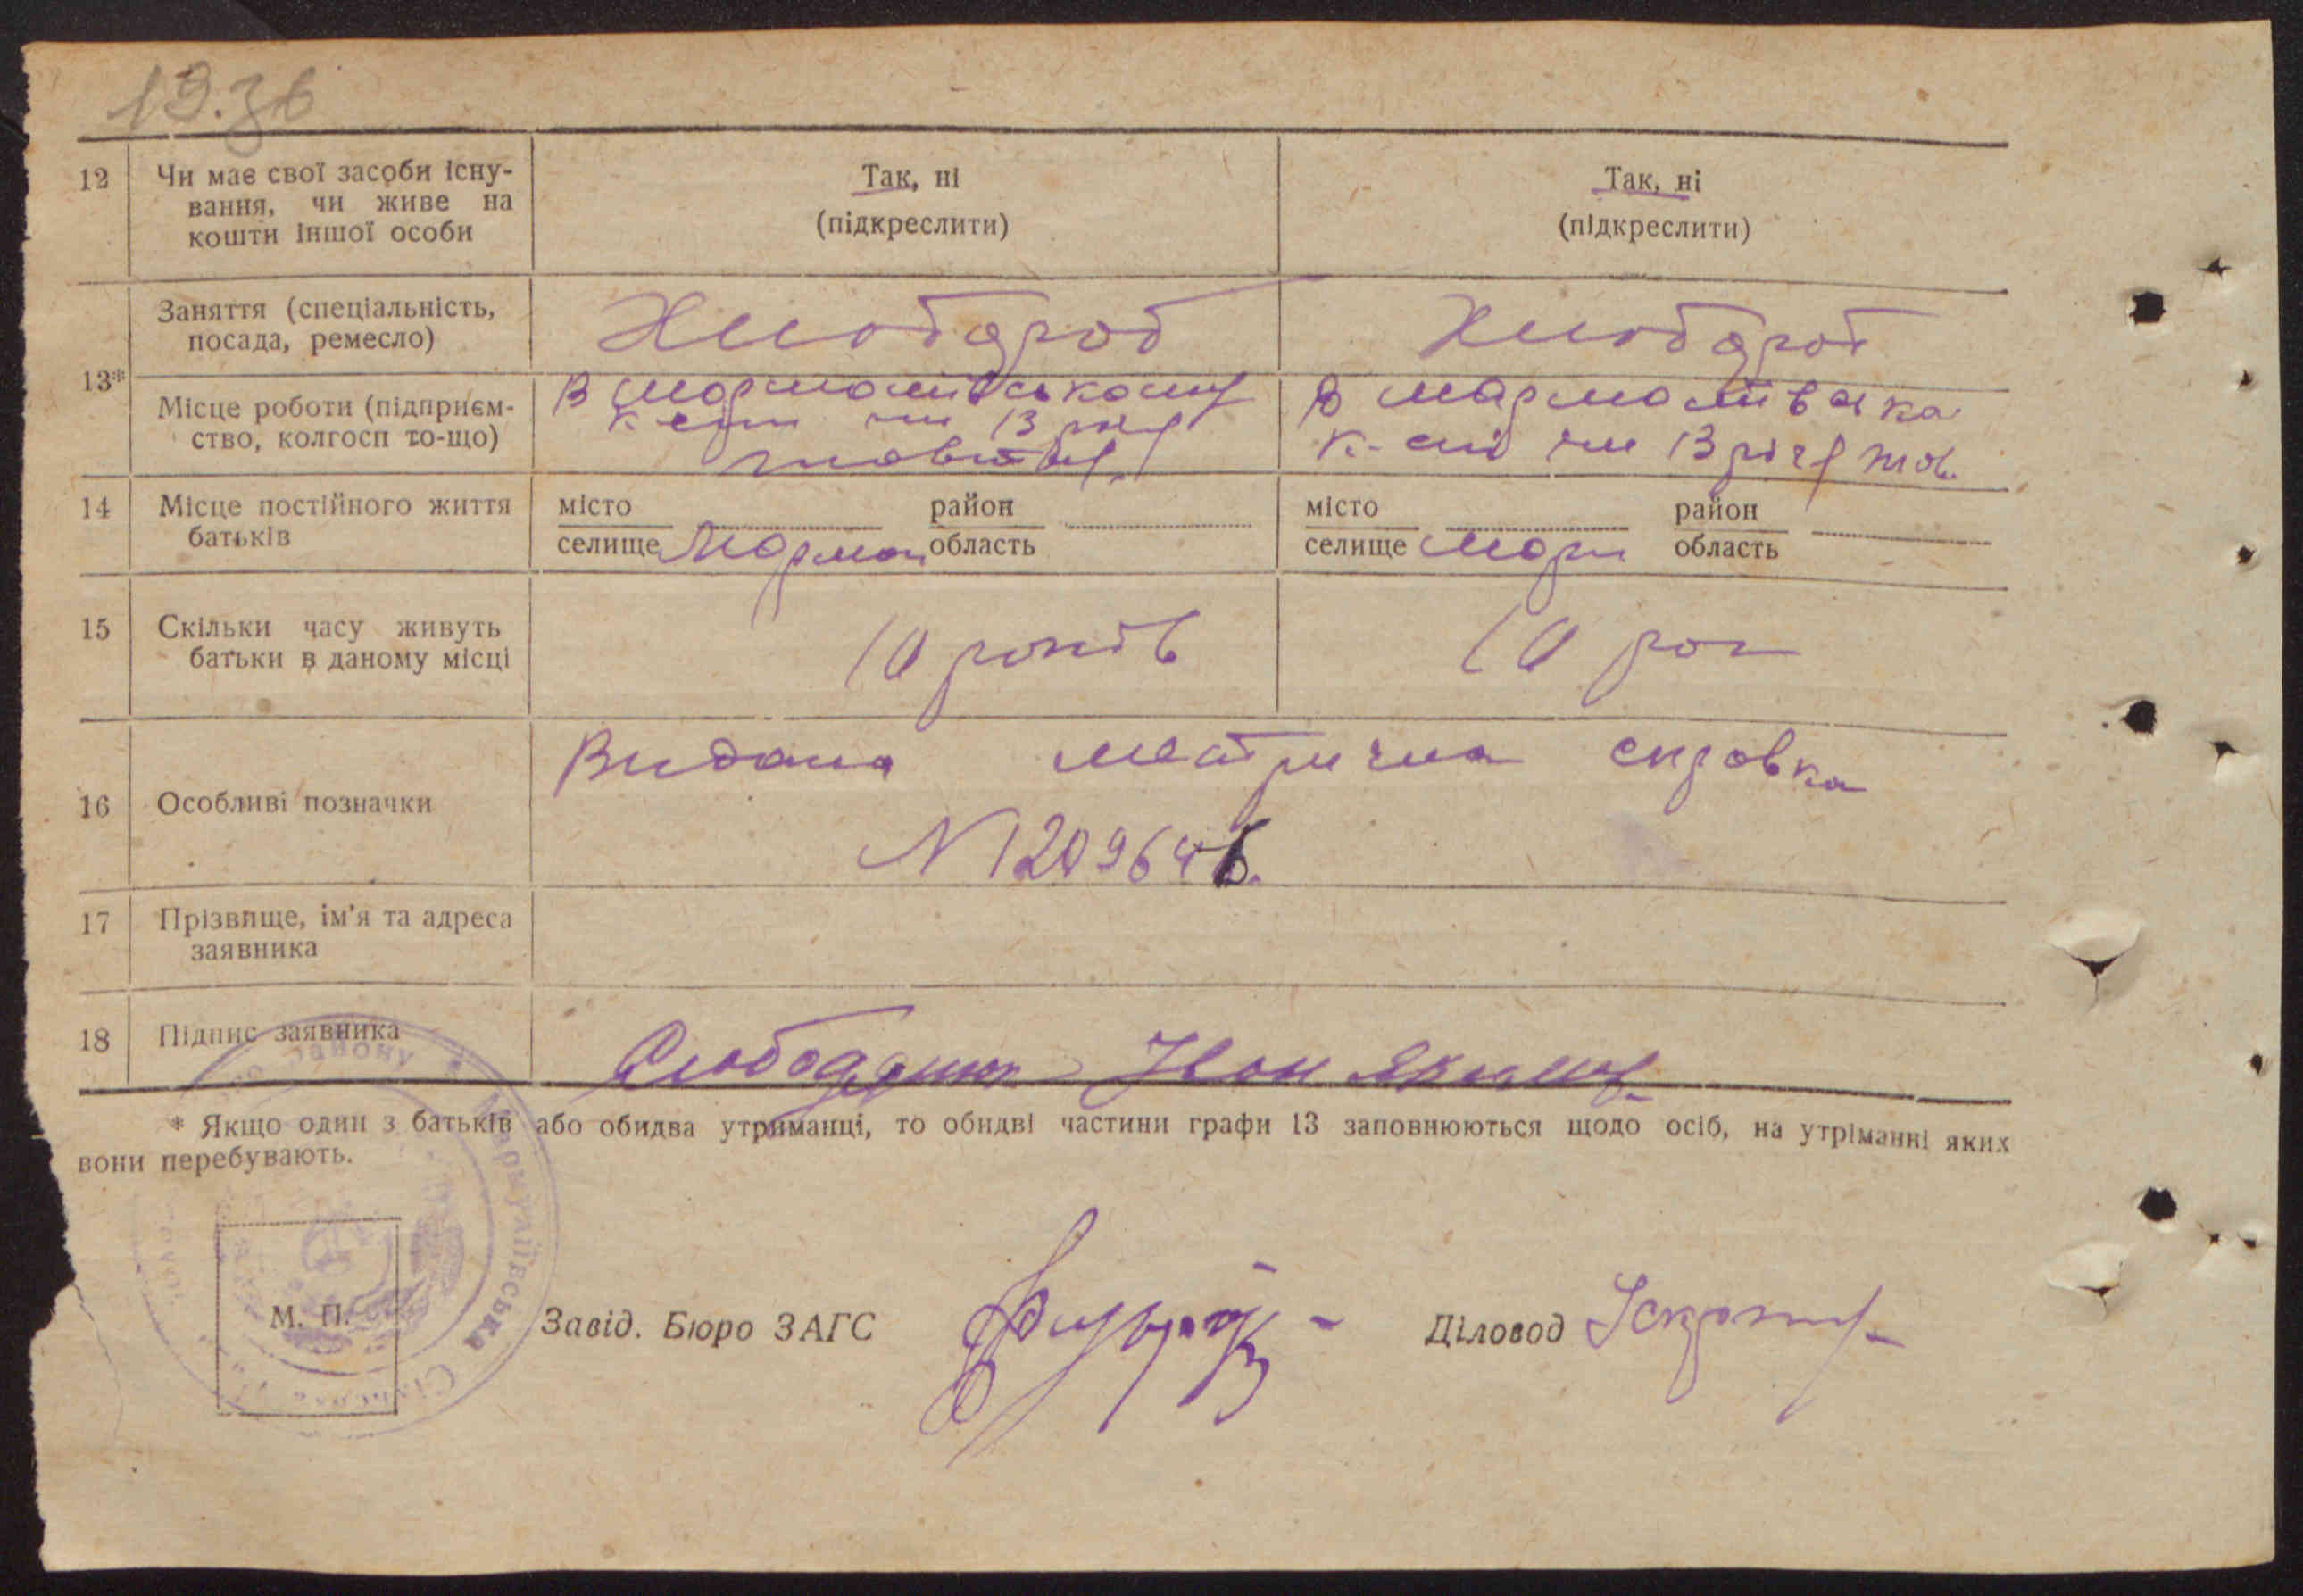 19.36
12 Чи має свої засоби існу-
вання, чи живе на
кошти іншої особи
Так, ні
(підкреслити)
Так, ні
(підкреслити)
13*
Заняття (спеціальність,
посада, ремесло)
Хлібороб
Хлібороб
Місце роботи (підприєм-
ство, колгосп то-що)
В
к-сті им 13 річ
жовтня
В
к-сті им 13 річ жов.
14 Місце постійного життя
батьків
місто район
селище область
місто район
селище область
15 Скільки часу живуть
батьки в даному місці
10 років
10 рок
16 Особливі позначки
Видана метрична справка
N 1209646.
17 Прізвище, ім'я та адреса
заявника
18 Підпис заявника
Іван
* Якщо один з батьків або обидва утриманці, то обидві частини графи 13 заповнюються щодо осіб, на утріманні яких
вони перебувають.
району
Сільська
М. П.
Завід. Бюро ЗАГС
Діловод